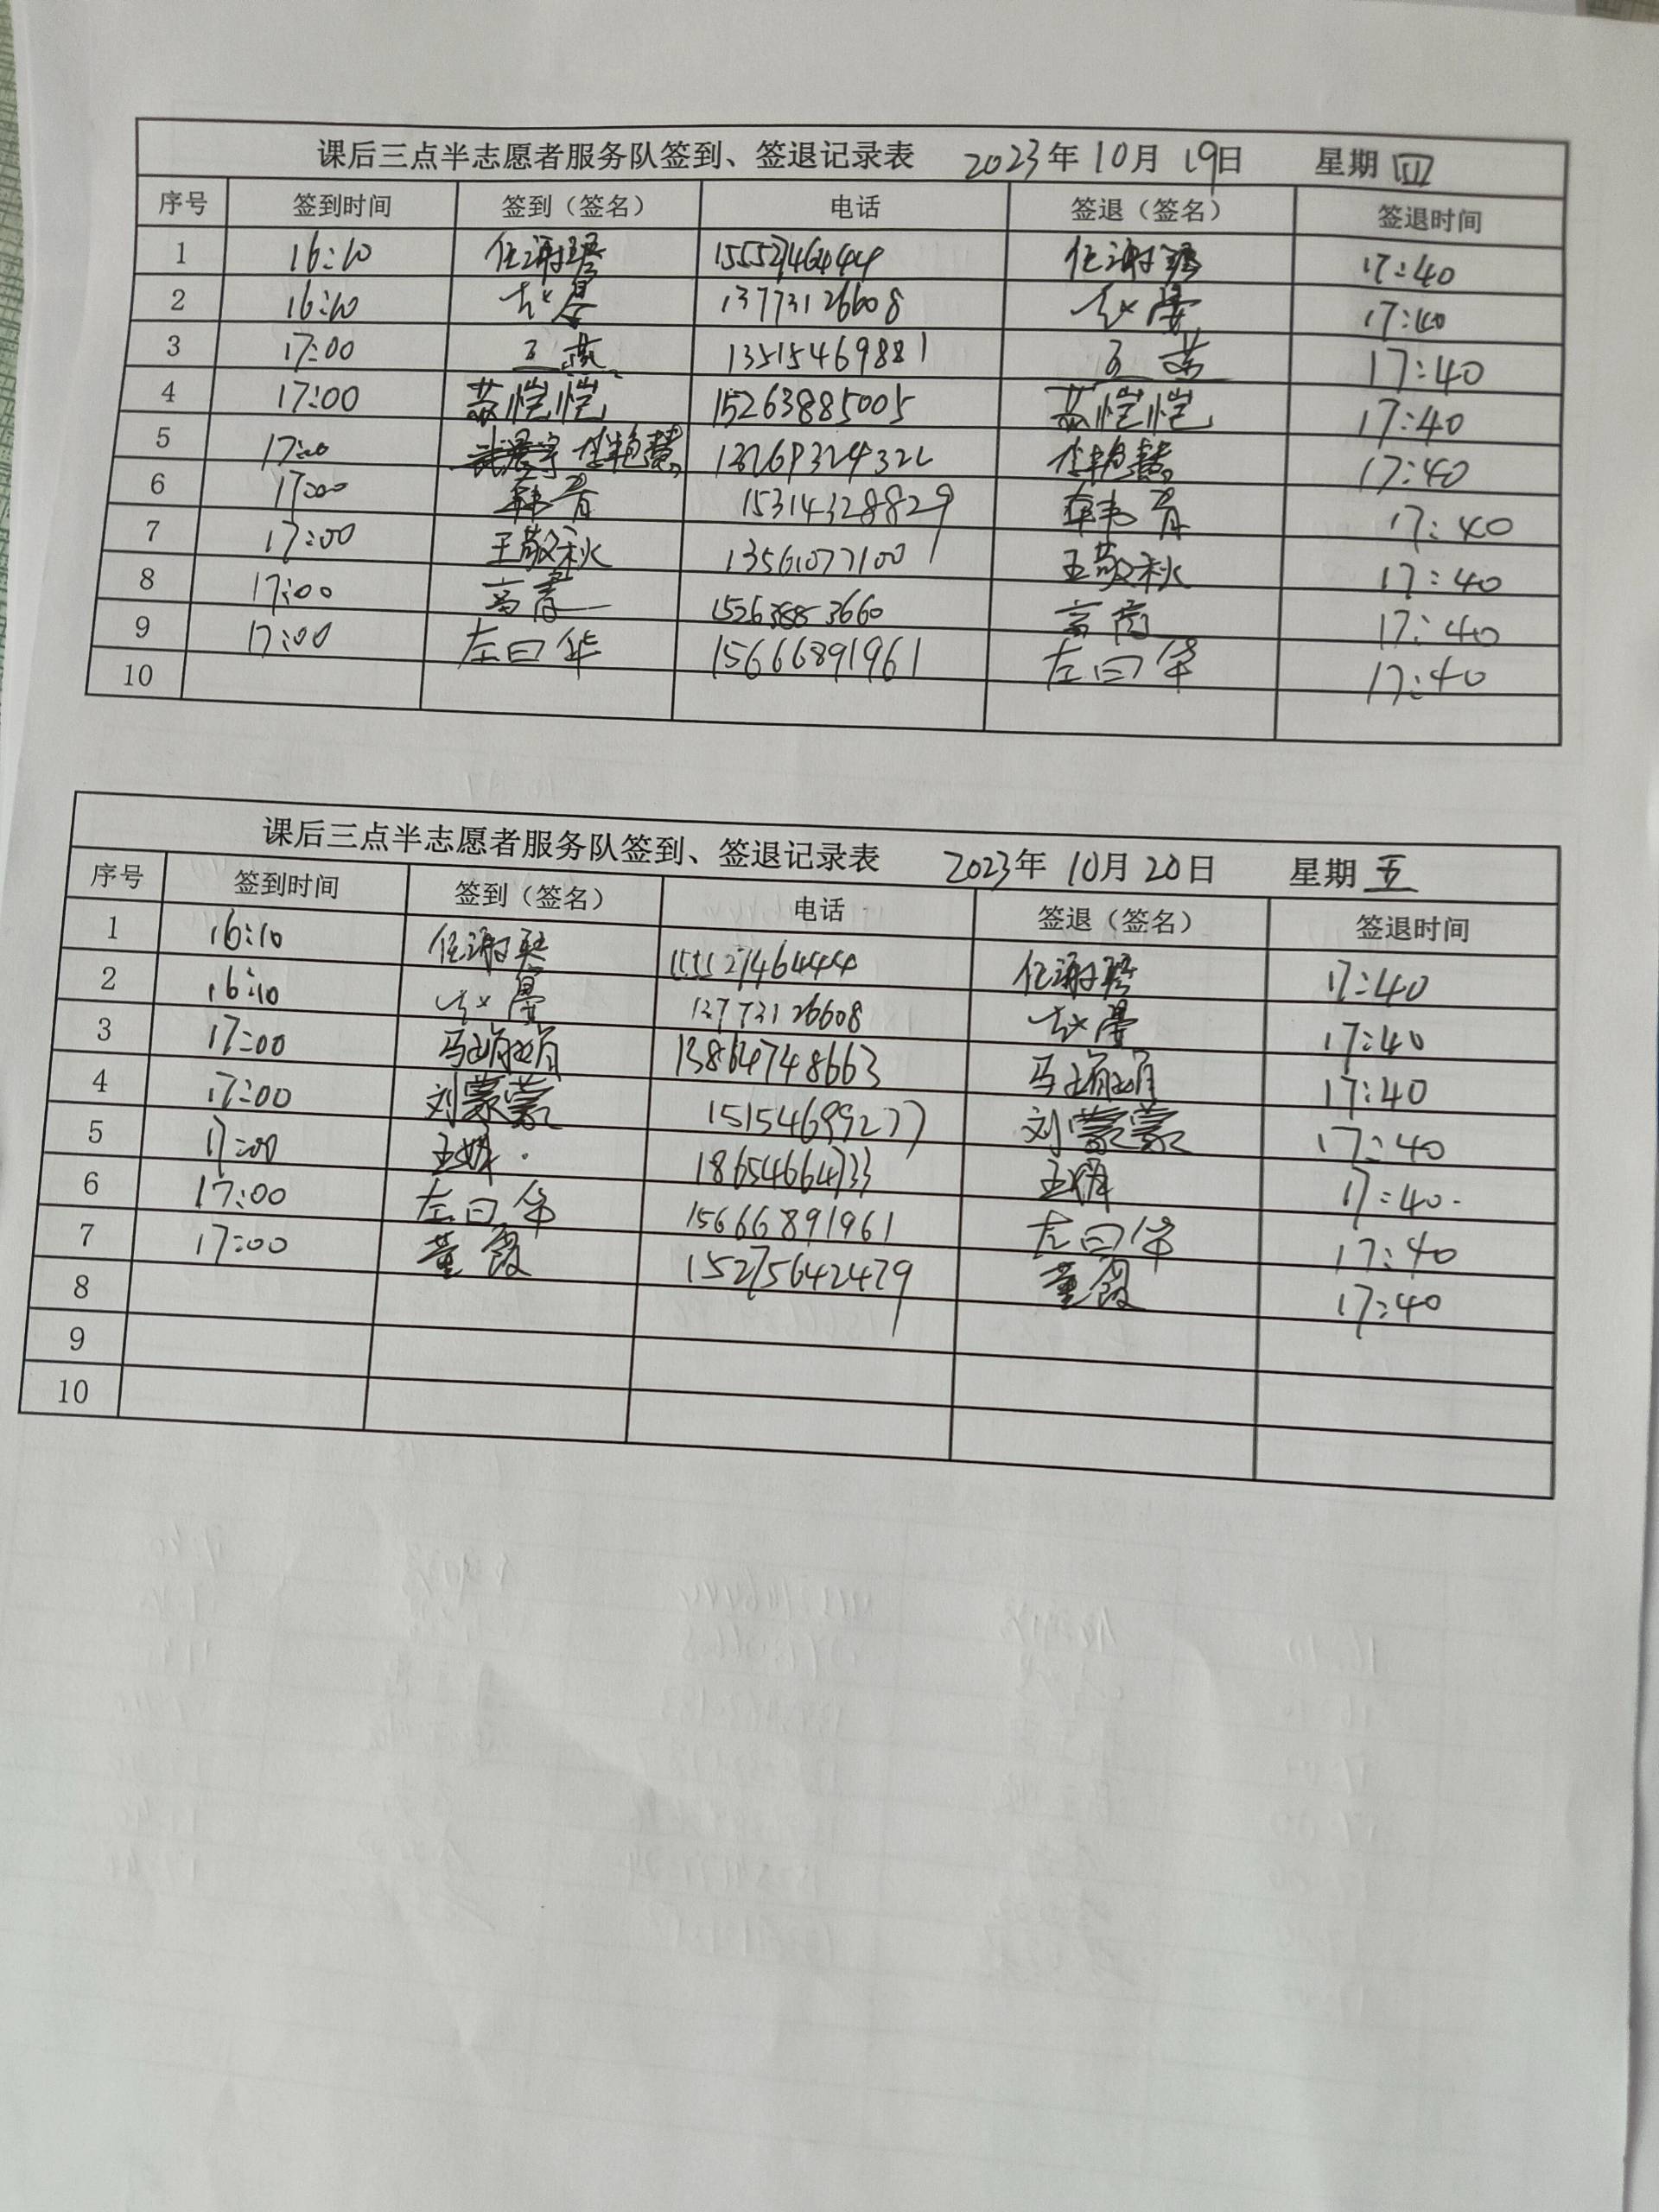 课后三点半志愿者服务队签到、签退记录表 2023年10月19日 星期四
序号 签到时间 签到（签名） 电话 签退（签名） 签退时间
1 16:10 15552746444 17:40
2 16:10 13773126608 17:40
3 17:00 13515469881 17:40
4 17:00 苏恺恺 15263885005 苏恺恺 17:40
5 17:00 17:40
6 17:00 韩青 15314328829 韩青 17:40
7 17:00 王敬秋 13561077100 王敬秋 17:40
8 17:00 15263883660 17:40
9 17:00 左曰华 15666891961 左曰华 17:40
10
课后三点半志愿者服务队签到、签退记录表 2023年10月20日 星期五
序号 签到时间 签到（签名） 电话 签退（签名） 签退时间
1 16:10 15552746444 17:40
2 16:10 13773126608 17:40
3 17:00 马娟娟 13864748663 马娟娟 17:40
4 17:00 刘蒙蒙 15154699277 刘蒙蒙 17:40
5 17:00 18654664733 17:40
6 17:00 左曰华 15666891961 左曰华 17:40
7 17:00 董霞 15275642479 董霞 17:40
8
9
10